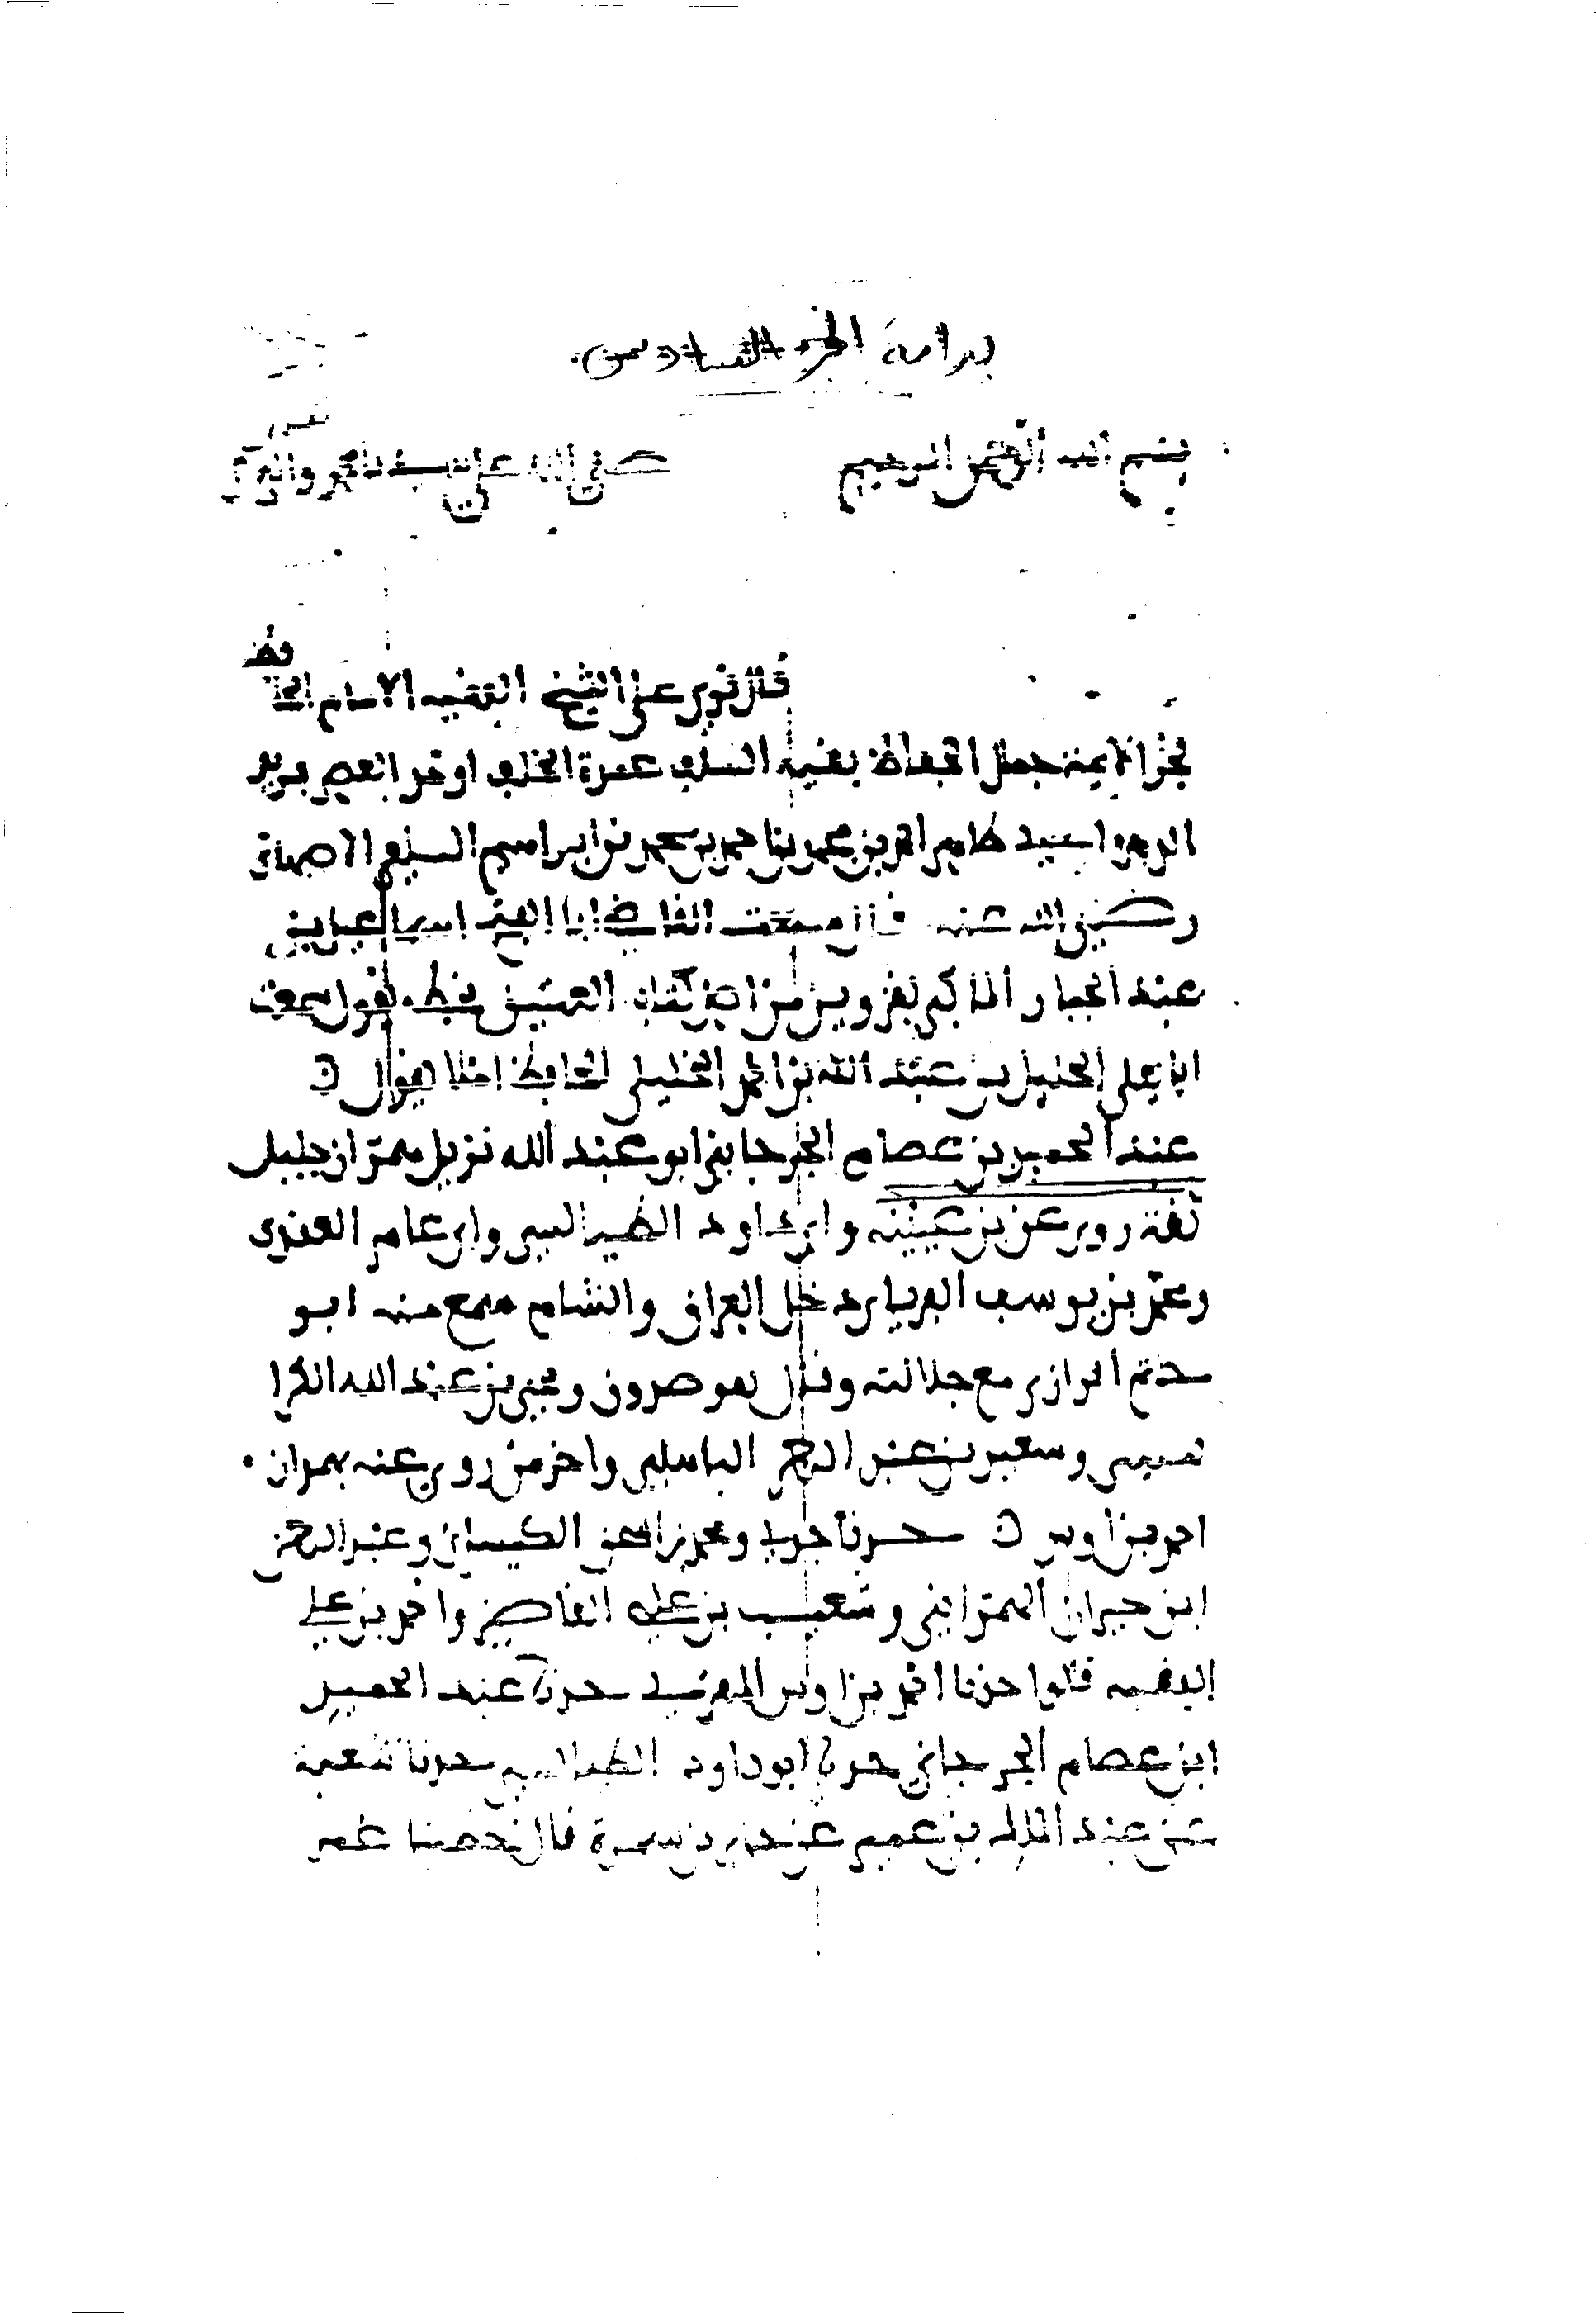 بداية الجزء السادس
بسم الله الرحمن الرحيم صلى الله على سيدنا محمد واله
قال قرى على الشيخ الفقيه الامام الحافظ
فخر الايمة جمال الحفاظ بقية السلف عمدة الخلف اوحد العصر فريد
الدهر ابى طاهر احمد بن محمد بن احمد بن محمد بن ابراهيم السلفى الاصبهانى
رضى الله عنه قال سمعت القاضى ابا الفتح اسماعيل بن
عبد الجبار الماكى بقزوين من اصل كتابه العتيق بخطه يقول سمعت
ابا يعلى الخليل بن عبد الله بن احمد الخليلى الحافظ املا يقول
عبد الحميد بن عصام الجرجانى ابو عبد الله نزيل همذان جليل
ثقة روى عن بن عيينة وابى داود الطيالسى وابى عامر العقدى
ومحمد بن يوسف الفريابى دخل العراق والشام سمع منه ابو
حاتم الرازى مع جلالته وقال هو صدوق ويحيى بن عبد الله الكرا
بيسى وسعيد بن عبد الرحمن واخر من روى عنه بهمذان
احمد بن اوس حدثنا جدى ومحمد بن اسحق الكيسانى وعبد الرحمن
ابن حمدان الهمذانى وشعيب بن على القاضى واحمد بن على
الفقيه قالوا حدثنا احمد بن اوس المقرى حدثنا عبد الحميد
ابن عصام الجرجانى حدثنا ابو داود الطيالسى حدثنا شعبة
عن عبد الملك بن عمير عن جابر بن سمرة قال خطبنا عمر